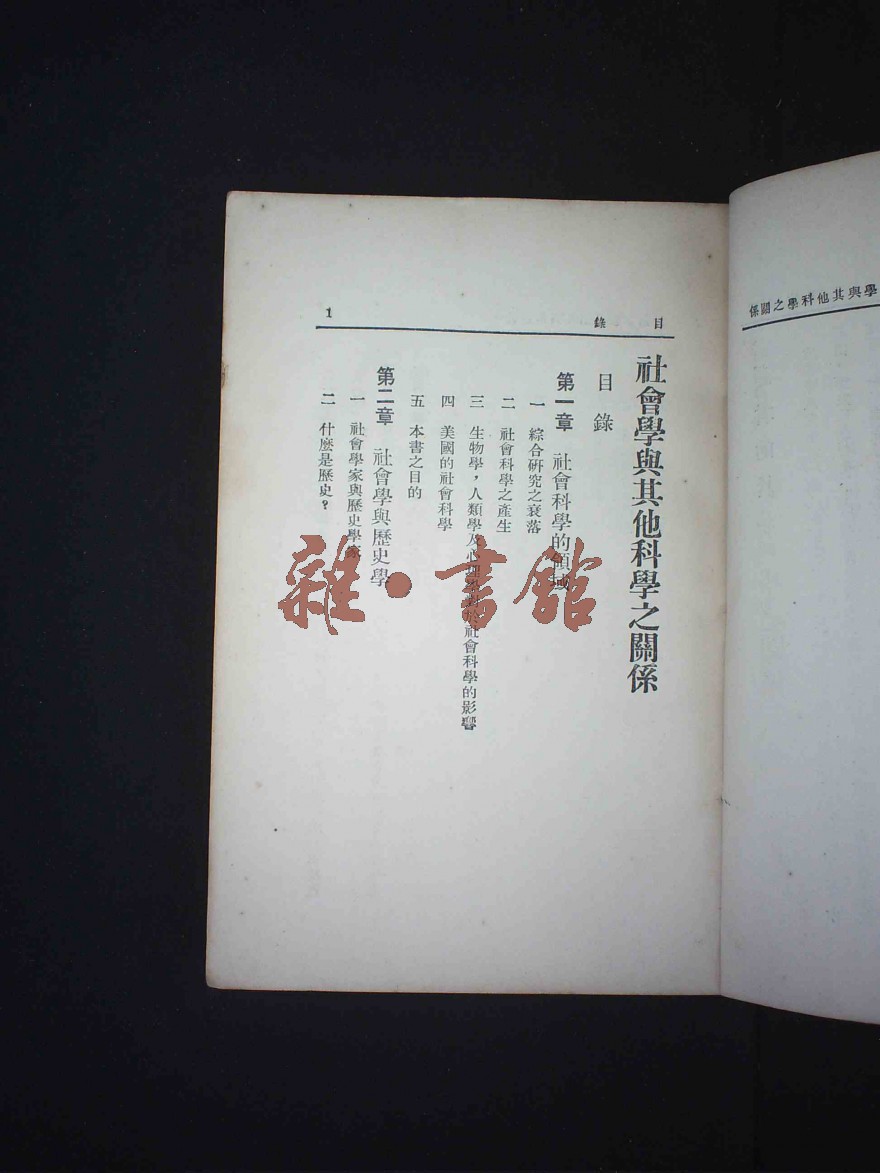 學與其他科學之關係
目錄
1
社會學與其他科學之關係
目錄
第一章 社會科學的領域
一 綜合研究之衰落
二 社會科學之產生
三 生物學，人類學及心理學對於社會科學的影響
四 美國的社會科學
五 本書之目的
第二章 社會學與歷史學
一 社會學家與歷史學家
二 什麼是歷史？
雜·書館